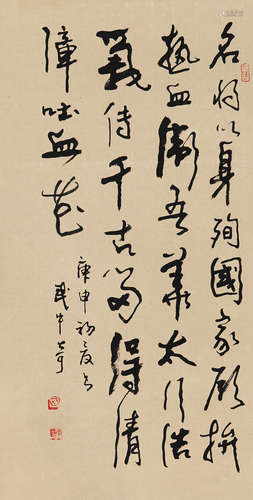 名将以身殉國家愿拚
热血衛吾華太行浩
氣传千古留得清
漳吐血花
庚申初夏书
武中奇